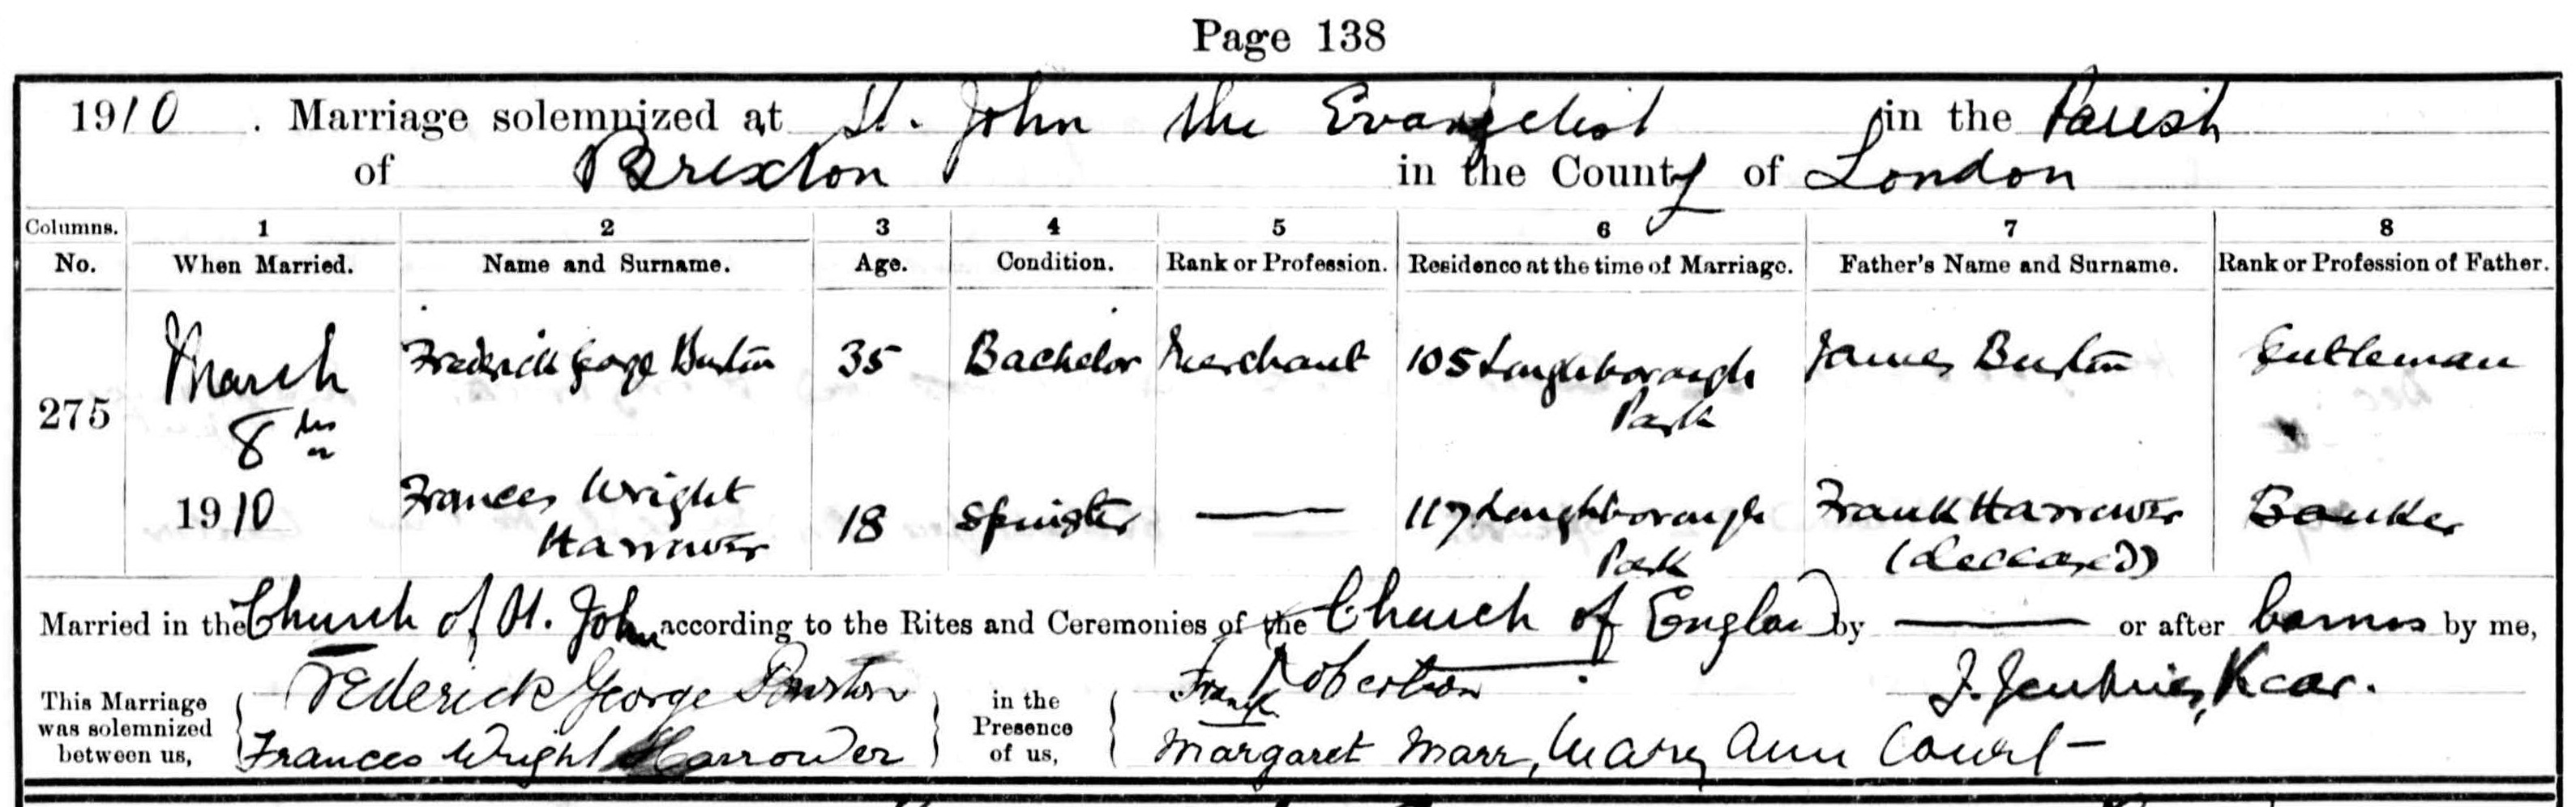 Page 138
1910. Marriage solemnized at St. John the Evangelist in the Parish
of Brixton in the County of London
Columns. 1 2 3 4 5 6 7 8
No. When Married. Name and Surname. Age. Condition. Rank or Profession. Residence at the time of Marriage. Father's Name and Surname. Rank or Profession of Father.
275 March 8th 1910
Frederick George Burton 35 Bachelor Merchant 105 Loughborough Park James Burton Gentleman
Frances Wright Harrower 18 Spinster — 117 Loughborough Park Frank Harrower (deceased) Banker
Married in the Church of St. John according to the Rites and Ceremonies of the Church of England by — or after banns by me,
This Marriage was solemnized between us, Frederick George Burton in the Presence of us, Frank Robertson J. Jenkins, Vicar.
Frances Wright Harrower Margaret Marr, Mary Ann Court